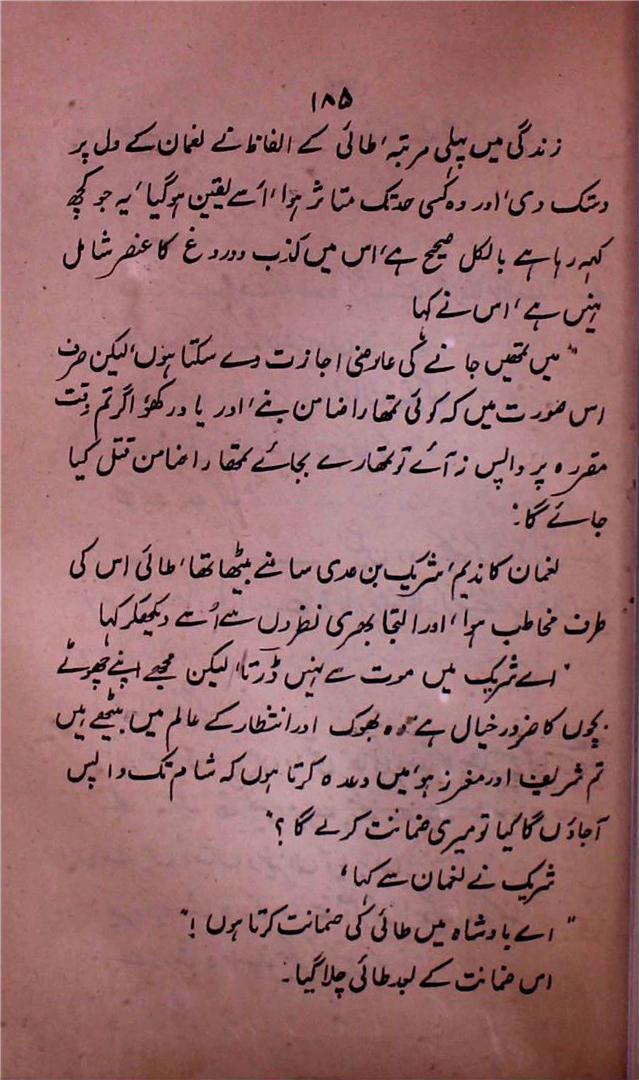 ۱۸۵
زندگی میں پہلی مرتبہ، طائی کے الفاظ نے نعمان کے دل پر
دستک دی، اور وہ کسی حد تک متاثر ہوا، اُسے یقین ہو گیا، یہ جو کچھ
کہہ رہا ہے بالکل صحیح ہے، اس میں کذب و دروغ کا عنصر شامل
نہیں ہے، اس نے کہا
"میں تمھیں جانے کی عارضی اجازت دے سکتا ہوں، لیکن صرف
اس صورت میں کہ کوئی تمھارا ضامن بنے، اور یاد رکھو اگر تم وقت
مقررہ پر واپس نہ آئے تو تمھارے بجائے تمھارا ضامن قتل کیا
جائے گا۔
نعمان کا ندیم، شریک بن عدی سامنے بیٹھا تھا، طائی اس کی
طرف مخاطب ہوا، اور التجا بھری نظروں سے اُسے دیکھ کر کہا
"اے شریک میں موت سے نہیں ڈرتا، لیکن مجھے اپنے چھوٹے
بچوں کا ضرور خیال ہے وہ بھوک اور انتظار کے عالم میں بیٹھے ہیں
تم شریف اور معزز ہو، میں وعدہ کرتا ہوں کہ شام تک واپس
آجاؤں گا کیا تو میری ضمانت کرلے گا؟"
شریک نے نعمان سے کہا،
"اے بادشاہ میں طائی کی ضمانت کرتا ہوں!"
اس ضمانت کے بعد طائی چلا گیا۔